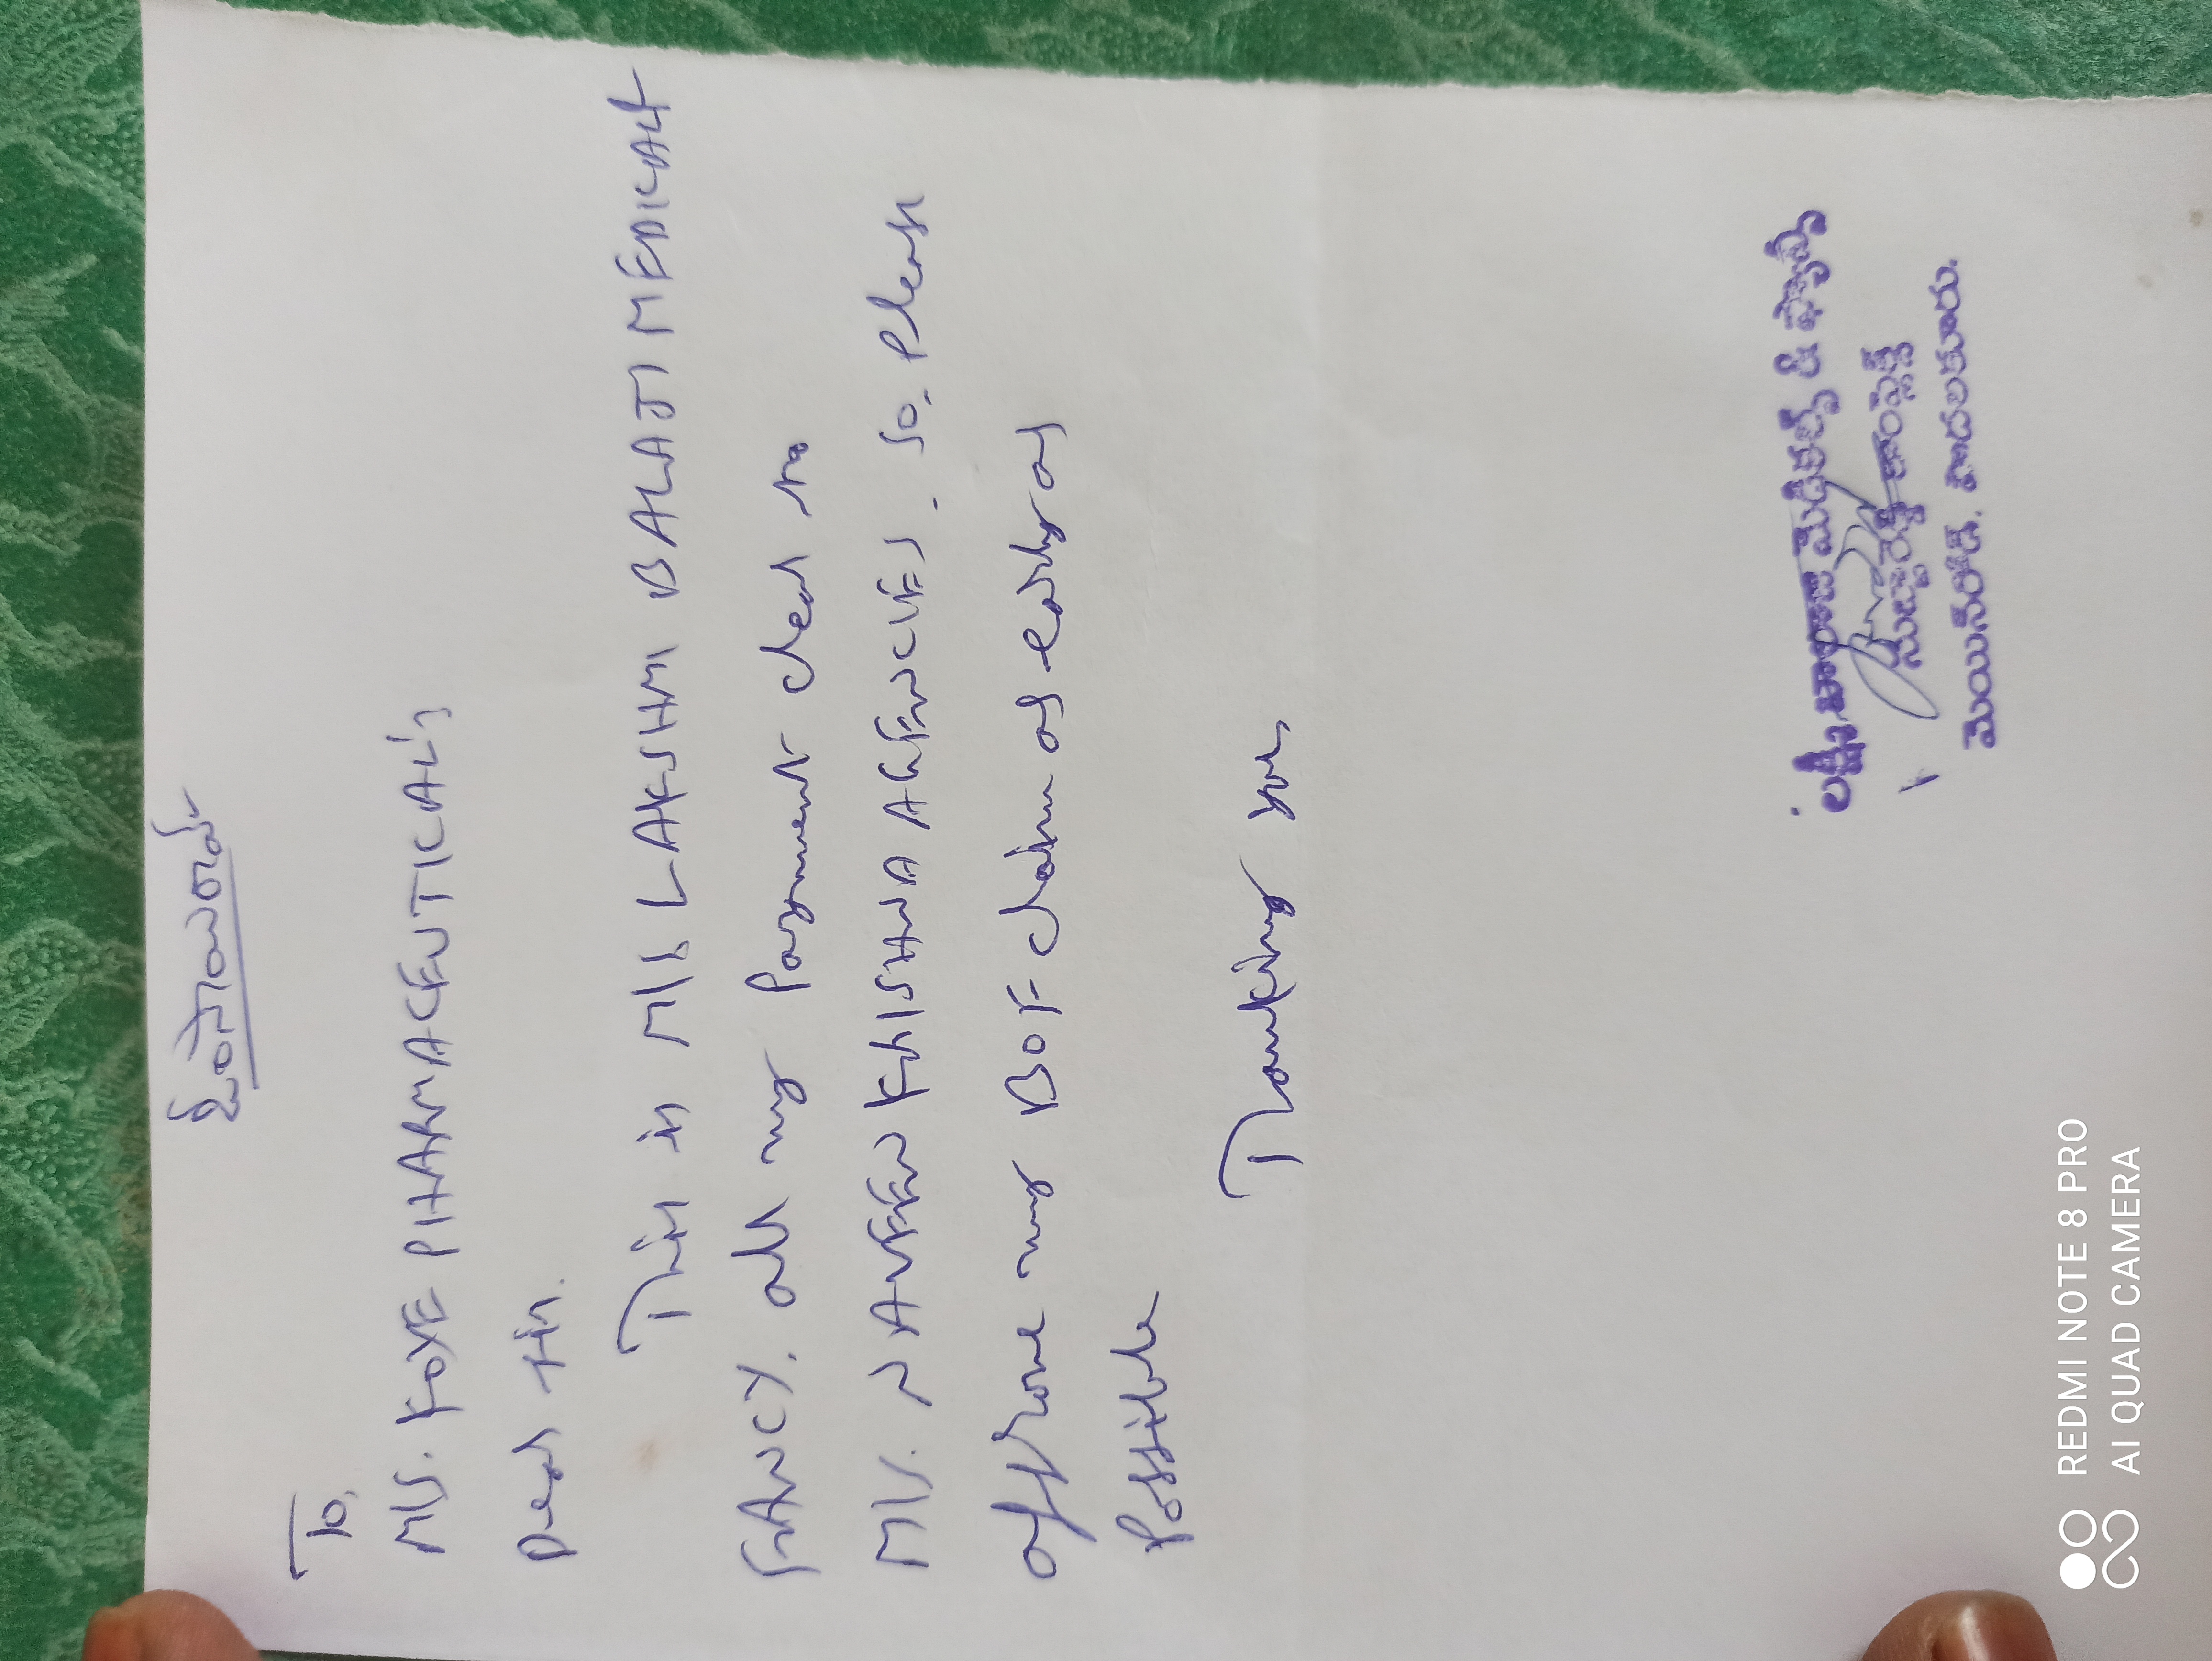 శ్రీరామ
To,
M/S. FOXE PHARMACEUTICAL'S
Dear Sir.
This is M/S LAKSHMI BALAJI MEDICAL &
FANCY. all my Payment clear to
M/S. NAVEEN KRISHNA AGENCIES. So, Please
my BOF claim as early as
Possible
Thanking you,
మెడికల్స్ & ఫ్యాన్సీ
కాంప్లెక్స్
మెయిన్‌రోడ్,
REDMI NOTE 8 PRO
AI QUAD CAMERA